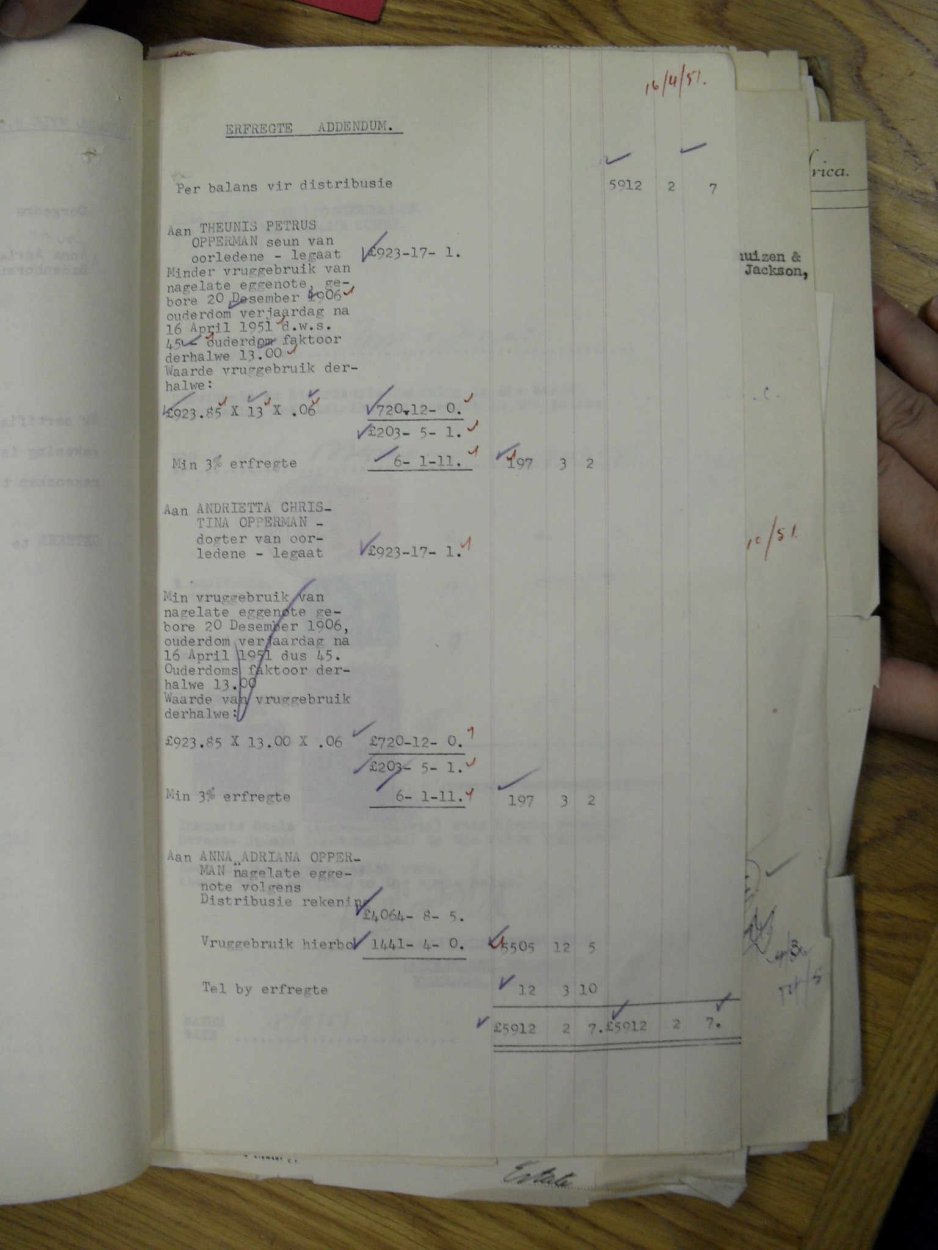 16/4/51.
ERFREGTE ADDENDUM.
Per balans vir distribusie 5912 2 7
rica.
Aan THEUNIS PETRUS
OPPERMAN seun van
oorledene - legaat £923-17- 1.
huizen &
Jackson,
Minder vruggebruik van
nagelate eggenote, ge-
bore 20 Desember 1906
ouderdom verjaardag na
16 April 1951 d.w.s.
45 ouderdom faktoor
derhalwe 13.00
Waarde vruggebruik der-
halwe:
£923.85 X 13 X .06 £720.12- 0.
£203- 5- 1.
Min 3% erfregte 6- 1-11. 197 3 2
Aan ANDRIETTA CHRIS-
TINA OPPERMAN -
dogter van oor-
ledene - legaat £923-17- 1.
10/51
Min vruggebruik van
nagelate eggenote ge-
bore 20 Desember 1906,
ouderdom verjaardag na
16 April 1951 dus 45.
Ouderdoms faktoor der-
halwe 13.00
Waarde van vruggebruik
derhalwe:
£923.85 X 13.00 X .06 £720-12- 0.
£203- 5- 1.
Min 3% erfregte 6- 1-11. 197 3 2
Aan ANNA ADRIANA OPPER-
MAN nagelate egge-
note volgens
Distribusie rekening
£4064- 8- 5.
Vruggebruik hierbo 1441- 4- 0. 5505 12 5
Tel by erfregte 12 3 10
£5912 2 7. £5912 2 7.
Estate